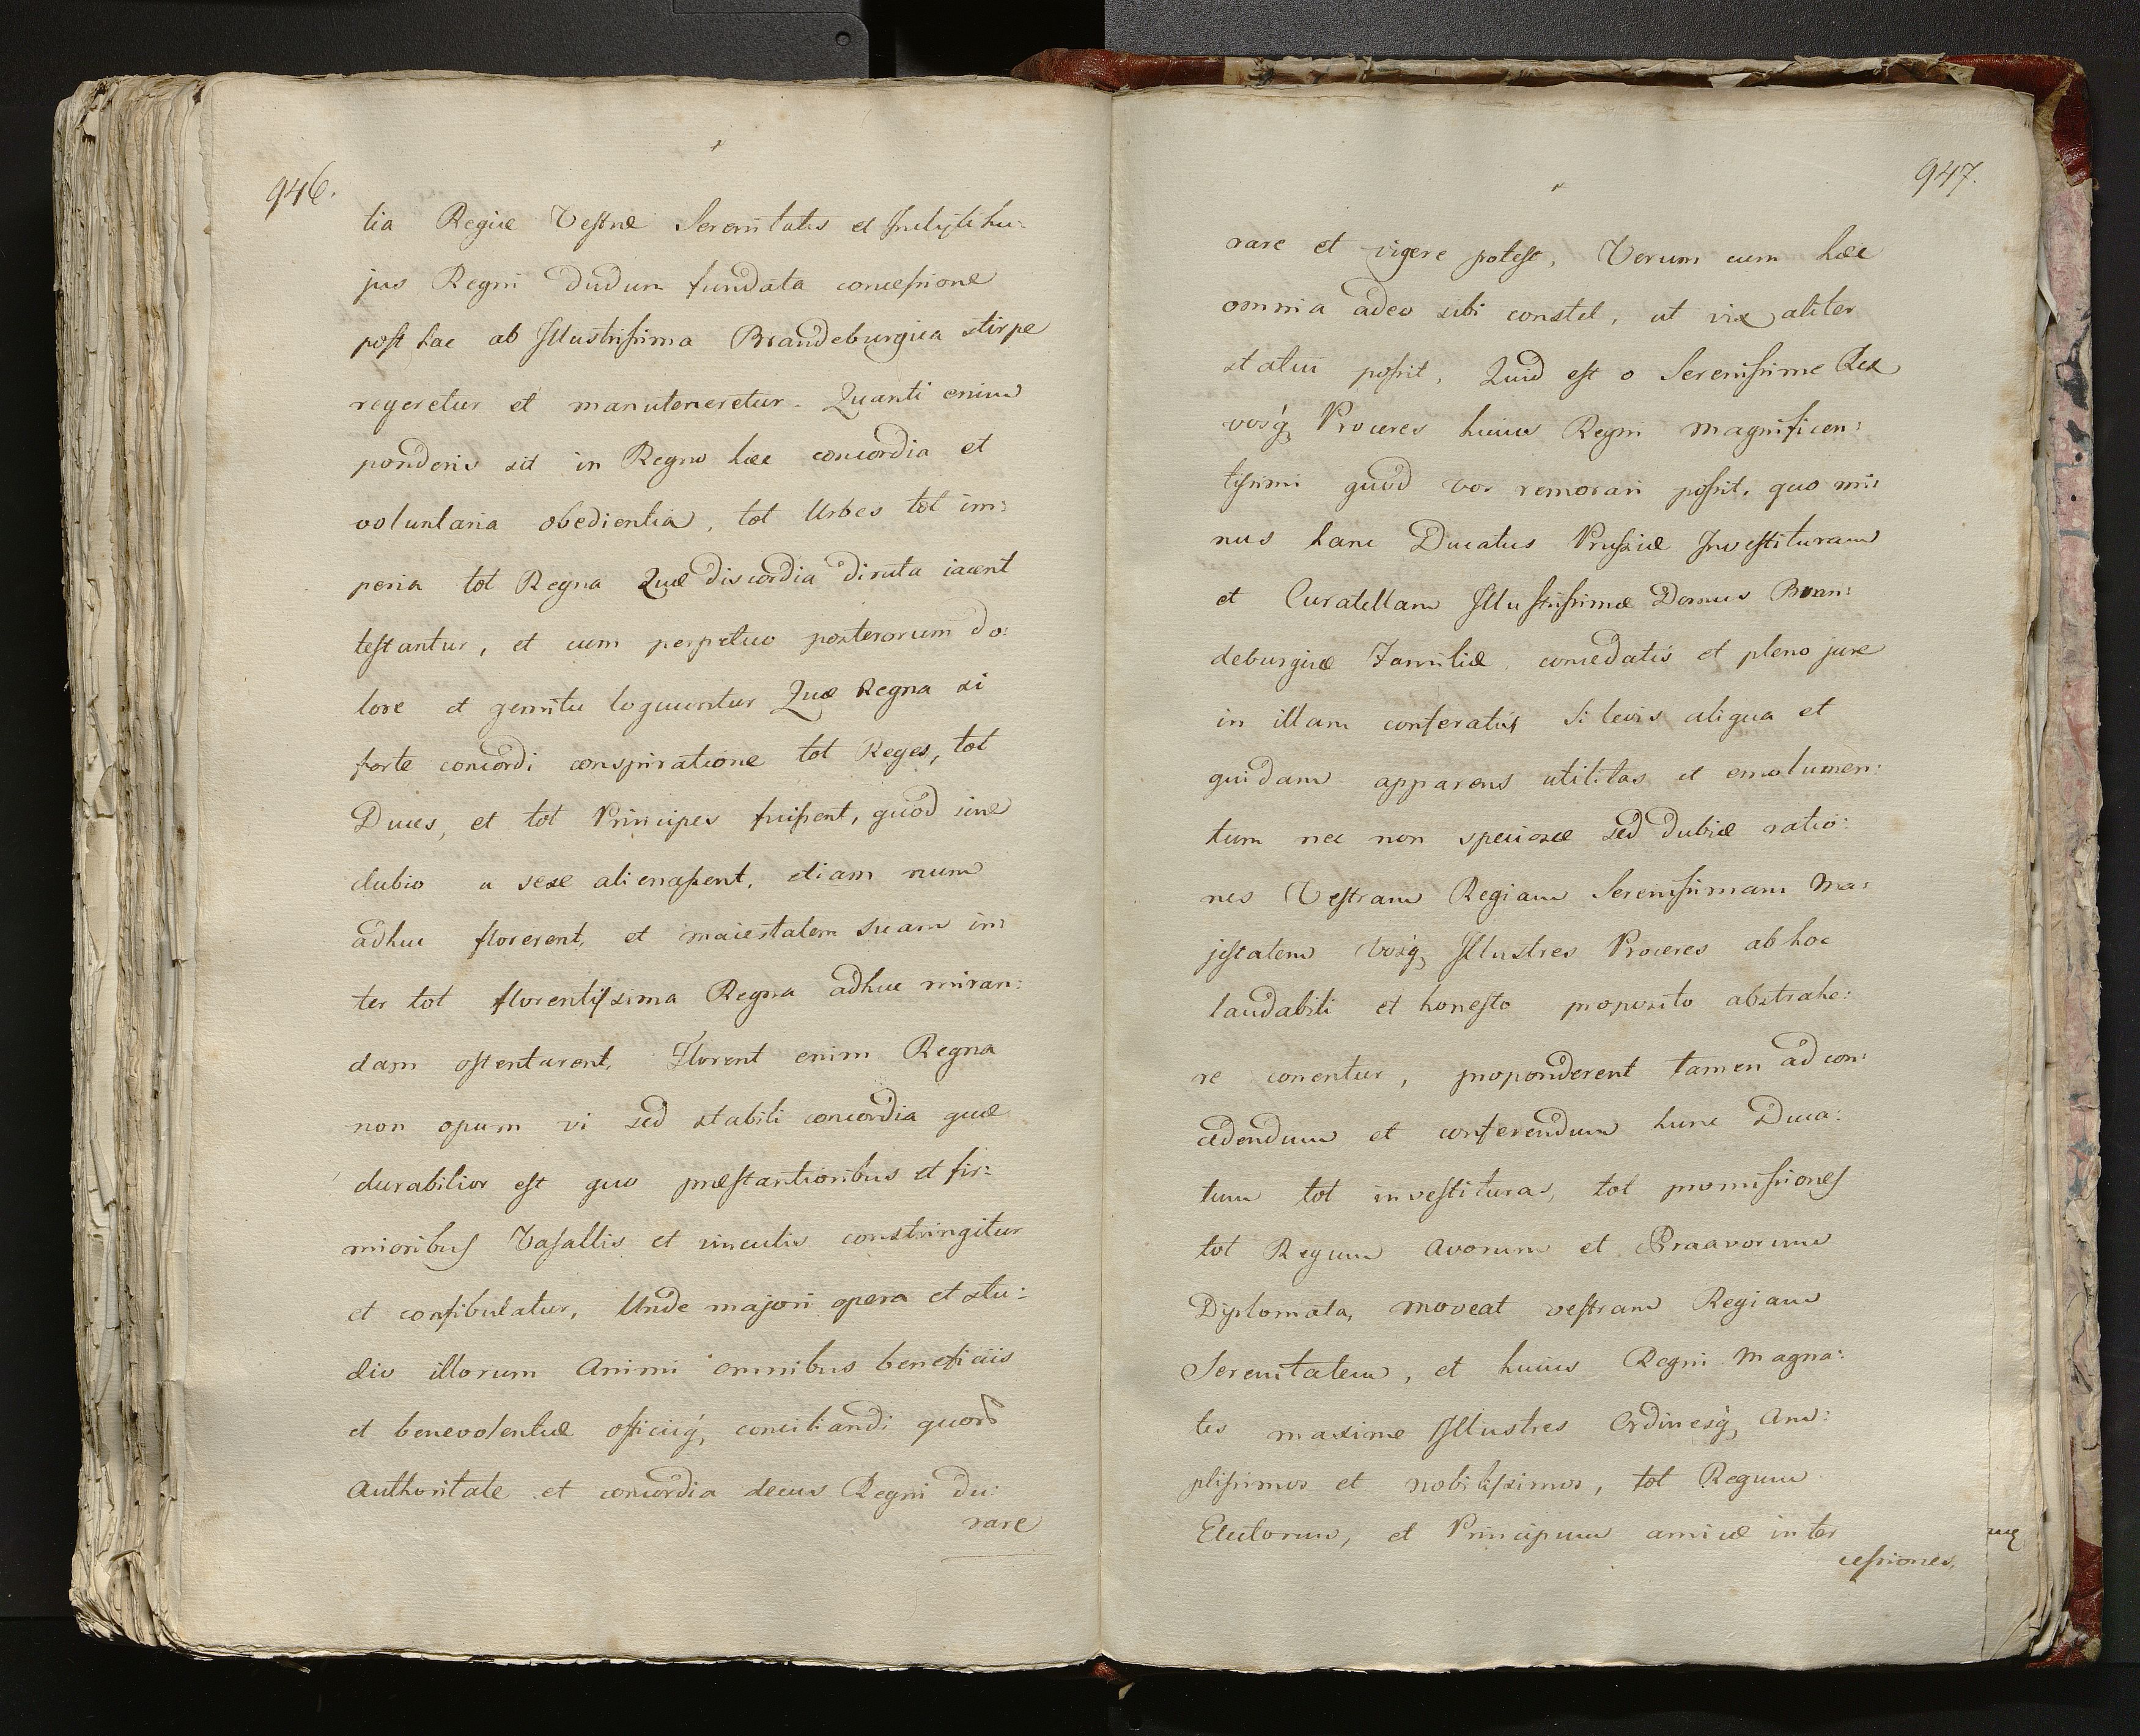 946.
tia Regiæ Vestræ Serenitatis et Inclyti hu:
jus Regni dudum fundata concessione
post hac ab Illustrissima Brandeburgica stirpe
regeretur et manuteneretur. Quanti enim
ponderis sit in Regno hæc concordia et
voluntaria obedientia, tot Urbes tot im:
peria tot Regna Quæ discordia diruta iacent
testantur, et cum perpetuo posterorum do:
lore et gemitu loquuntur Quæ Regna si
forte concordi conspiratione tot Reges, tot
Duces, et tot Principes fuissent, quod sine
dubio a sese alienassent, etiam num
adhuc florerent, et maiestatem suam in:
ter tot florentissima Regna adhuc miran:
dam ostentarent, Florent enim Regna
non opum vi sed stabili concordia quæ
durabilior est quo præstantioribus et fir:
mioribus Vasallis et vinculis constringitur
et confibulatur, Unde majori opera et stu:
dio illorum Animi omnibus beneficiis
et benevolentiæ officiiq, conciliandi quorũ
Authoritate et concordia decus Regni du:
rare
947.
rare et vigere potest, Verum cum hæc
omnia adeo sibi constet, ut vix aliter
statui possit, Quid est o Serenissime Rex
vosq, Proceres huius Regni magnificen:
tissimi quod vos remorari possit, quo mi:
nus hanc Ducatus Prussiæ Investituram
et Curatellam Illustrissimæ Domus Bran:
deburgicæ Familiæ concedatis et pleno jure
in illam conferatis Si levis aliqua et
quidam apparens utilitas et emolumen:
tum nec non speciosæ sed dubiæ ratio:
nes Vestram Regiam Serenissimam Ma:
jestatem Vosq, Illustres Proceres ab hoc
laudabili et honesto proposito abstrahe:
re conentur, proponderent tamen ad con:
cedendum et conferendum hunc Duca:
tum tot investituras, tot promissiones
tot Regum Avorum et Praavorum
Diplomata, moveat vestram Regiam
Serenitatem, et huius Regni Magna:
tes maxime Illustres Ordinesq, Am:
plissimos et nobilissimos, tot Regum
Electorum, et Principum amicæ inter
cessiones,